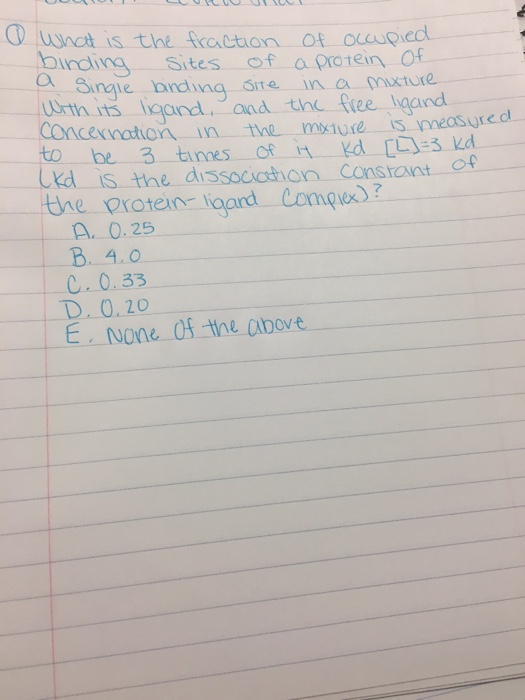 ① What is the fraction of occupied
binding sites of a protein of
a single binding site in a mixture
with its ligand, and the free ligand
concernation in the mixture is measured
to be 3 times of it kd [L]=3 kd
(kd is the dissociation constant of
the protein-ligand complex)?
A. 0.25
B. 4.0
C. 0.33
D. 0.20
E. None of the above